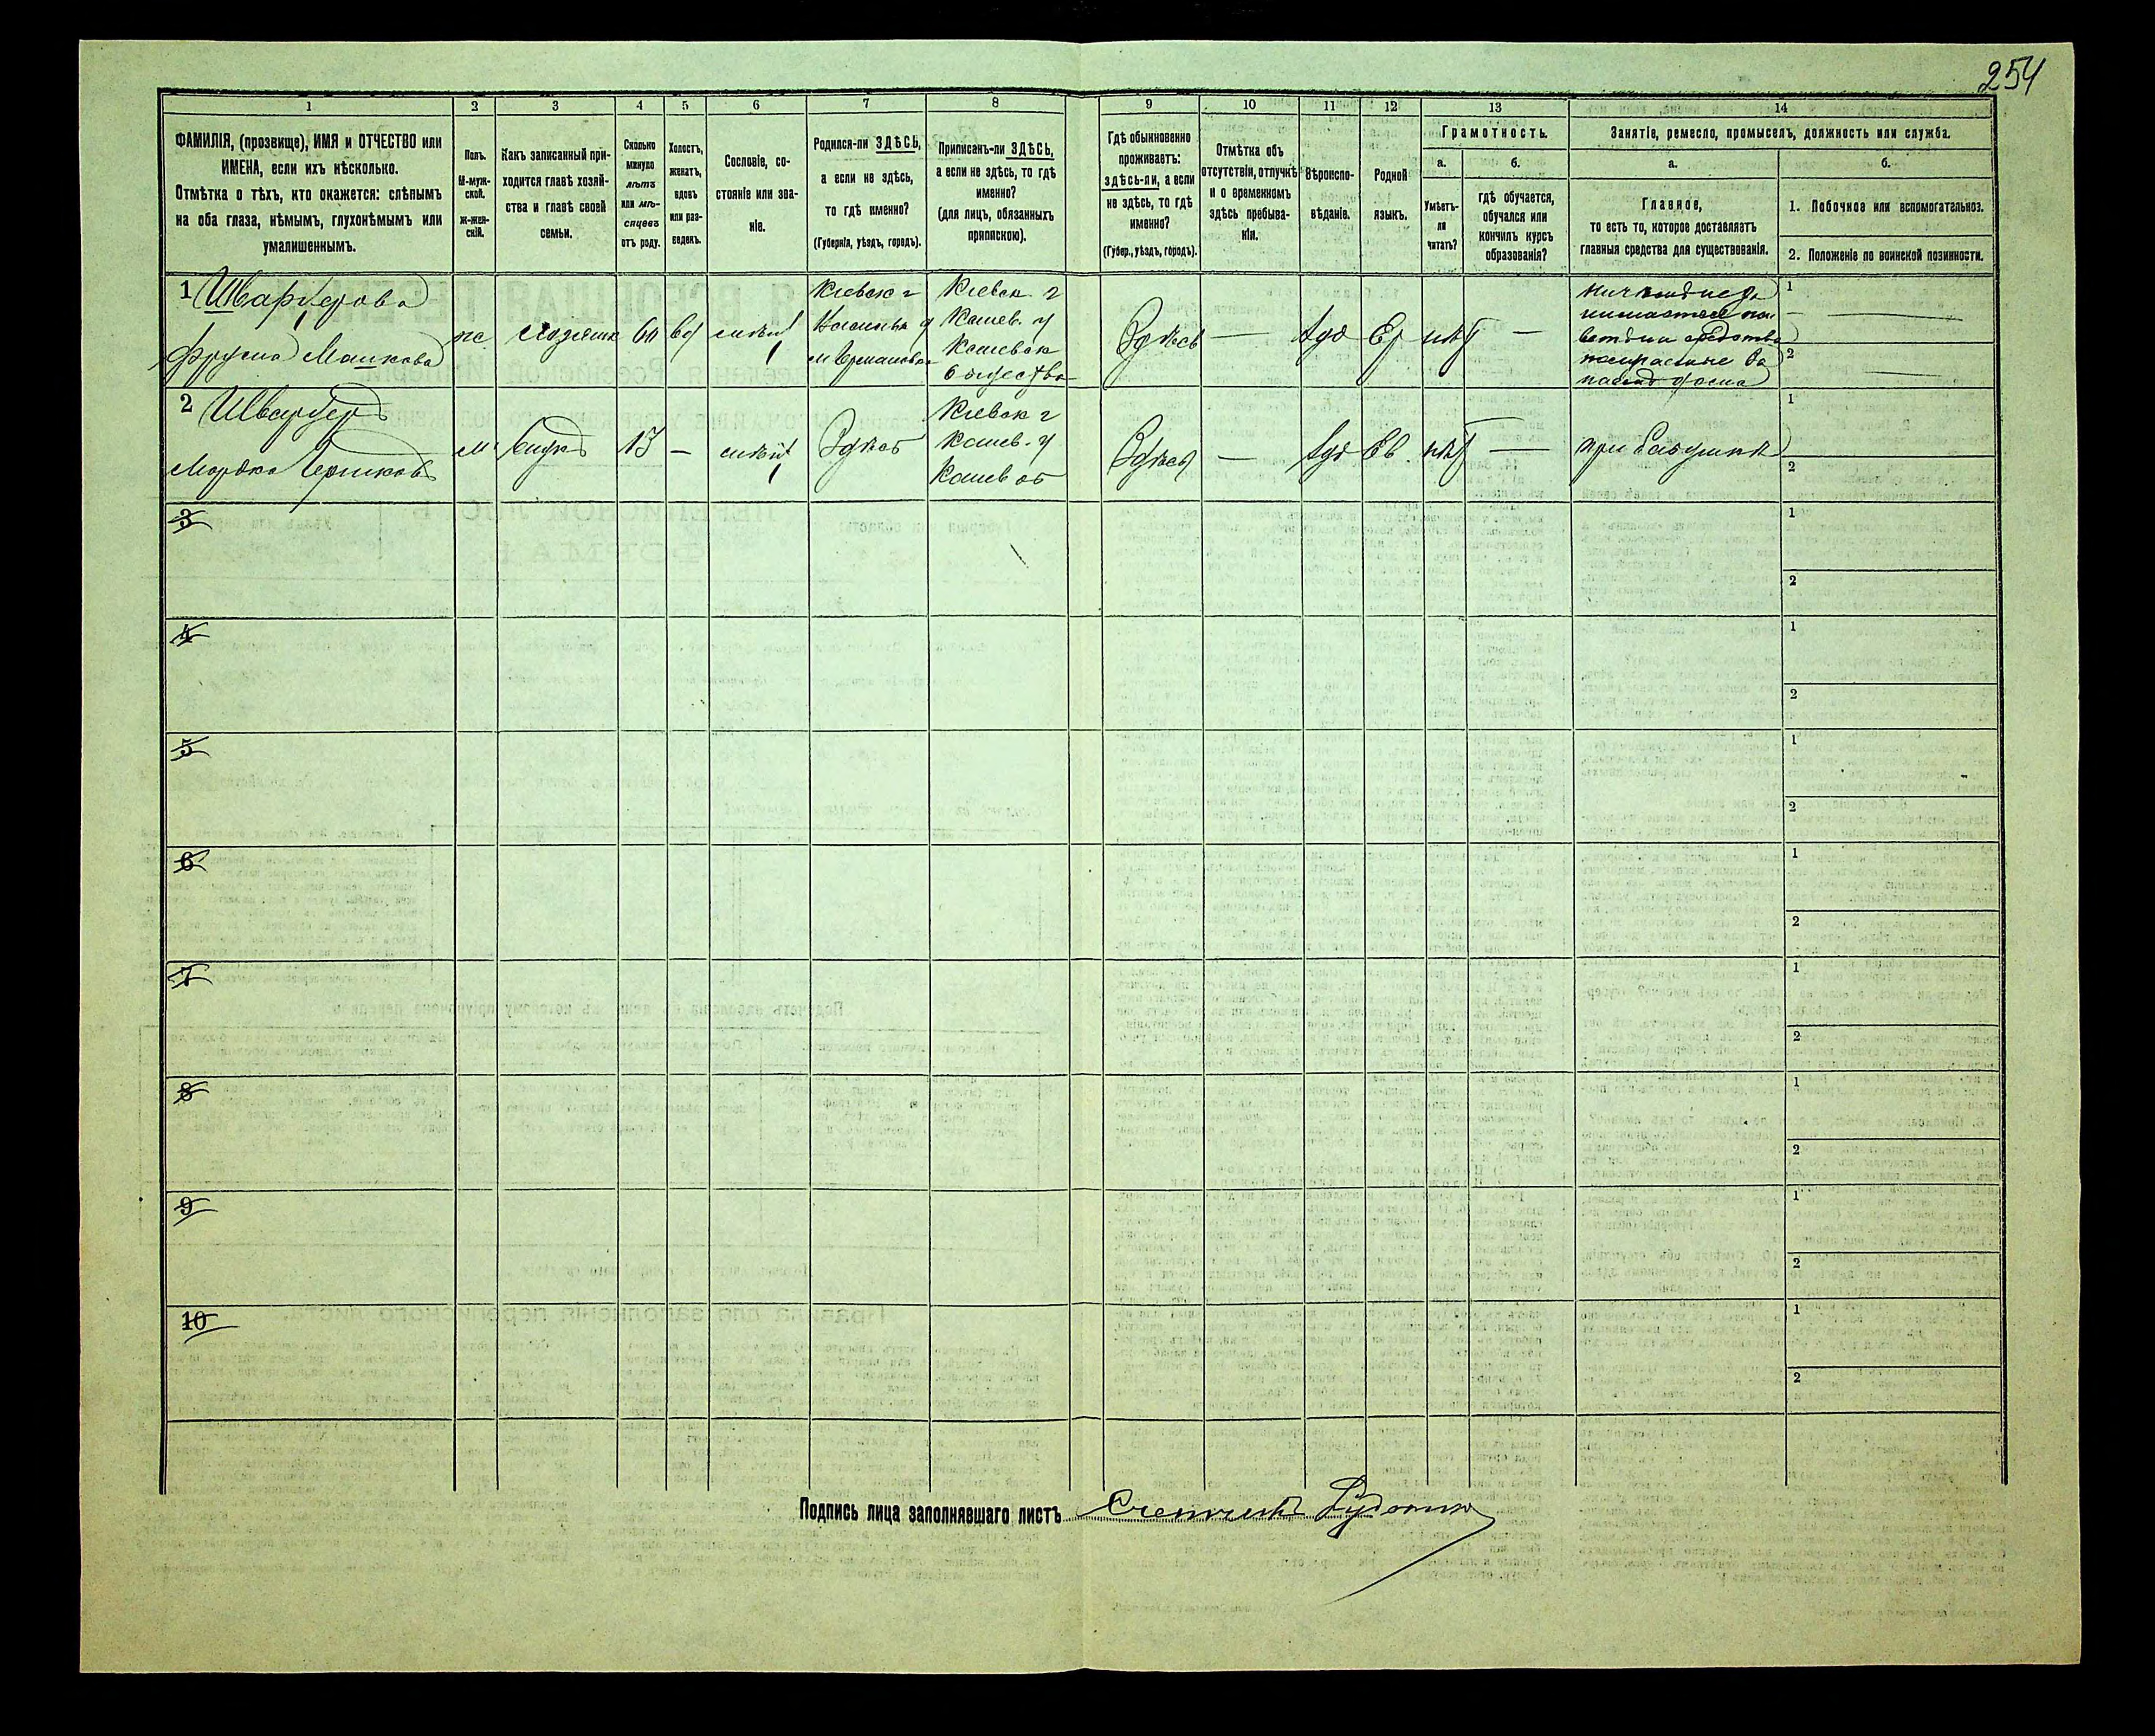 254
1 2 3 4 5 6 7 8 9 10 11 12 13 14
ФАМИЛІЯ, (прозвище), ИМЯ и ОТЧЕСТВО или
ИМЕНА, если ихъ нѣсколько.
Отмѣтка о тѣхъ, кто окажется: слѣпымъ
на оба глаза, нѣмымъ, глухонѣмымъ или
умалишеннымъ.
Полъ.
М-муж-
ской.
ж-жен-
скій.
Какъ записанный при-
ходится главѣ хозяй-
ства и главѣ своей
семьи.
Сколько
минуло
лѣтъ
или мѣ-
сяцевъ
отъ роду.
Холостъ,
женатъ,
вдовъ
или раз-
веденъ.
Сословіе, со-
стояніе или зва-
ніе.
Родился-ли ЗДѢСЬ,
а если не здѣсь,
то гдѣ именно?
(Губернія, уѣздъ, городъ).
Приписанъ-ли ЗДѢСЬ,
а если не здѣсь, то гдѣ
именно?
(для лицъ, обязанныхъ
припискою).
Гдѣ обыкновенно
проживаетъ:
здѣсь-ли, а если
не здѣсь, то гдѣ
именно?
(Губер., уѣздъ, городъ).
Отмѣтка объ
отсутствіи, отлучкѣ
и о временномъ
здѣсь пребыва-
ніи.
Вѣроиспо-
вѣданіе.
Родной
языкъ.
Грамотность.
а.
Умѣетъ-
ли
читать?
б.
гдѣ обучается,
обучался или
кончилъ курсъ
образованія?
Занятіе, ремесло, промыселъ, должность или служба.
а.
Главное,
то есть то, которое доставляетъ
главныя средства для существованія.
б.
1. Побочное или вспомогательное.
2. Положеніе по воинской повинности.
1 Шварцерова
Фрума Машкова
хозяинъ 60
Кіевск г
Кіевск г
Канев. у
Каневск
общества
Здѣсь — Іуд Ев нѣт —
1
2
2 Шварцеръ
Мордко
м внукъ 13 — Здѣсь
Кіевск г
Канев. у
Канев об
Здѣсь — Іуд Ев. нѣт — при бабушкѣ
1
2
3
1
2
4
1
2
5
1
2
6
1
2
7
1
2
8
1
2
9
1
2
10
1
2
Подпись лица заполнявшаго листъ Счетчикъ